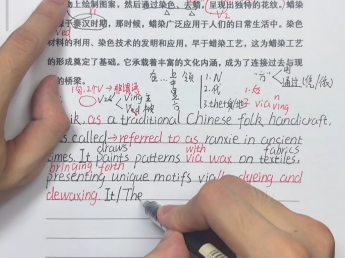 物上绘制图案，然后通过染色、去蜡，呈现出独特的花纹。蜡染
于秦汉时期，那时候，蜡染广泛应用于人们的日常生活中。染色
材料的利用、染色技术的发明和应用，早于蜡染工艺，为蜡染工艺
的形成奠定了基础。它承载着丰富的文化内涵，成为了连接过去与现
的桥梁。
ik, as a traditional Chinese folk handicraft,
is called → referred to as ranxie in ancient
draws with fabrics
times. It paints patterns via wax on textiles,
bringing forth
presenting unique motifs via dyeing and
dewaxing. It/The